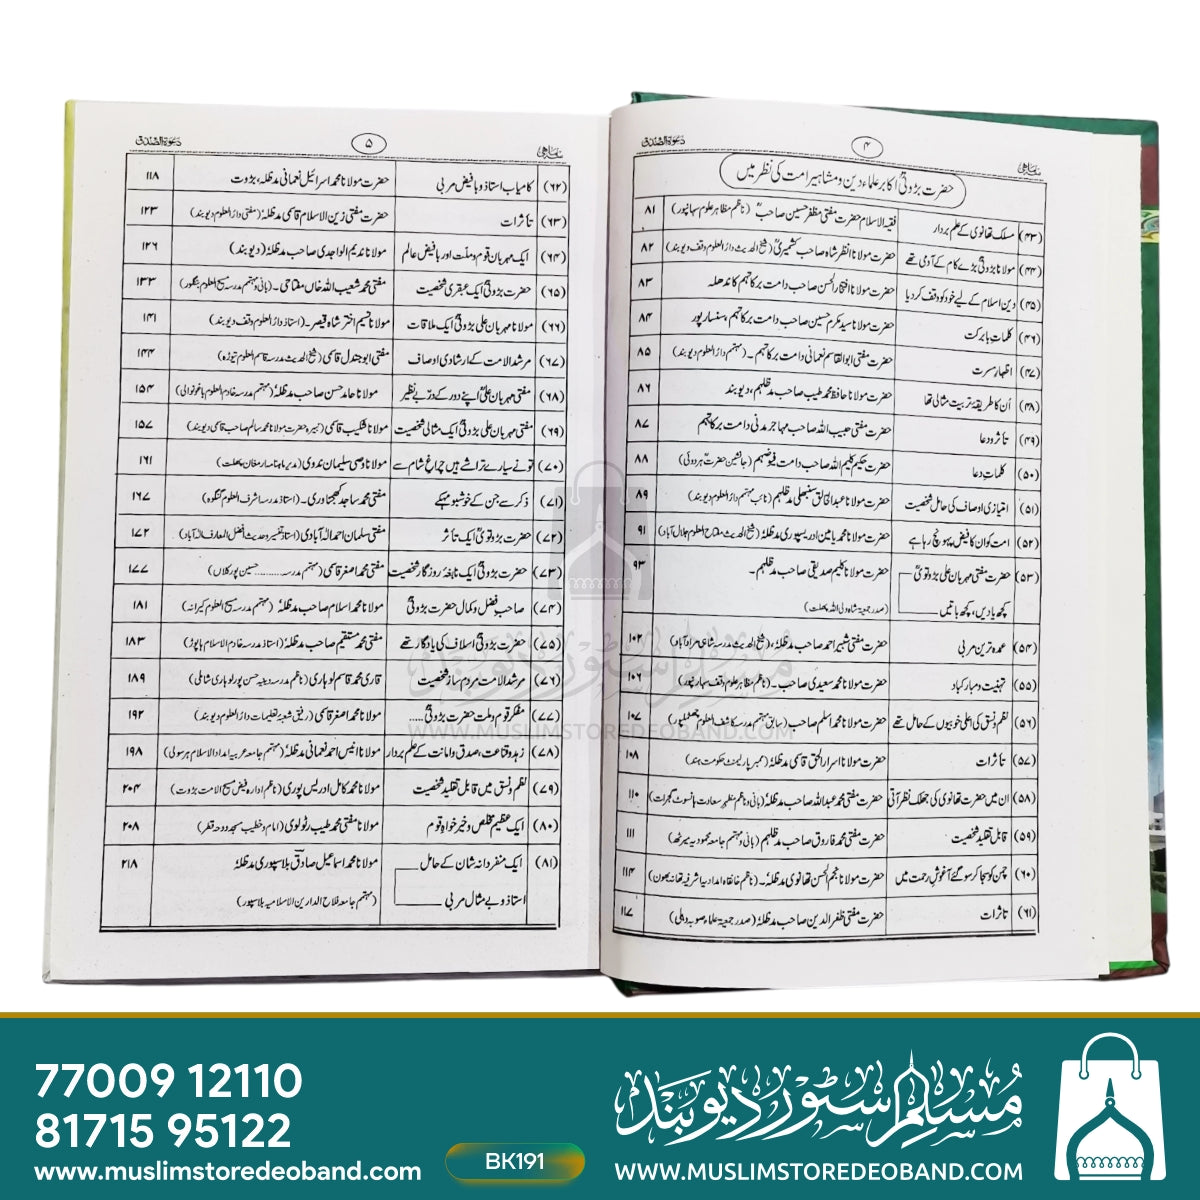 سہ ماہی
۴
دعوۃ الصدق
حضرت بڑوتیؒ اکابر علماء دین و مشاہیر امت کی نظر میں
(۴۳) مسلک تھانوی کے علم بردار فقیہ الاسلام حضرت مفتی مظفر حسین صاحبؒ (ناظم مظاہر علوم سہارنپور) ۸۱
(۴۴) مولانا بڑوتیؒ بڑے کام کے آدمی تھے حضرت مولانا انظر شاہ صاحب کشمیریؒ (شیخ الحدیث دارالعلوم وقف دیوبند) ۸۲
(۴۵) دین اسلام کے لیے خود کو وقف کردیا حضرت مولانا افتخار الحسن صاحب دامت برکاتہم کاندھلہ ۸۳
(۴۶) کلمات بابرکت حضرت مولانا سید مکرم حسین صاحب دامت برکاتہم، سنسارپور ۸۴
(۴۷) اظہار مسرت حضرت مفتی ابوالقاسم نعمانی دامت برکاتہم۔ (مہتمم دارالعلوم دیوبند) ۸۵
(۴۸) اُن کا طریقۂ تربیت مثالی تھا حضرت مولانا حافظ محمد طیب صاحب مدظلہم، دیوبند ۸۶
(۴۹) تاثر و دعا حضرت مفتی حبیب اللہ صاحب مہاجر مدنی دامت برکاتہم ۸۷
(۵۰) کلمات دعا حضرت حکیم کلیم اللہ صاحب دامت فیوضہم (جانشین حضرتؒ ہردوئی) ۸۸
(۵۱) امتیازی اوصاف کی حامل شخصیت حضرت مولانا عبدالخالق سنبھلی مدظلہم (نائب مہتمم دارالعلوم دیوبند) ۸۹
(۵۲) امت کو ان کا فیض پہونچ رہا ہے حضرت مولانا محمد یامین ادریسپوری مدظلہٗ (شیخ الحدیث مفتاح العلوم جلال آباد) ۹۱
(۵۳) حضرت مفتی مہربان علی بڑوتویؒ حضرت مولانا کلیم صدیقی صاحب مدظلہم۔ ۹۳
کچھ یادیں، کچھ باتیں (صدر جمعیۃ شاہ ولی اللہ پھلت)
(۵۴) عمدہ ترین مربی حضرت مفتی شبیر احمد صاحب مدظلہٗ، (شیخ الحدیث مدرسہ شاہی مرادآباد) ۱۰۲
(۵۵) تہنیت ومبارکباد حضرت مولانا محمد سعیدی صاحب۔ (ناظم مظاہر علوم وقف سہارنپور) ۱۰۶
(۵۶) نظم و نسق کی اعلی خوبیوں کے حامل تھے حضرت مولانا محمد اسلم صاحب (سابق مہتمم مدرسہ کاشف العلوم چھٹملپور) ۱۰۷
(۵۷) تاثرات حضرت مولانا اسرار الحق قاسمی مدظلہٗ (ممبر پارلیمنٹ حکومت ہند) ۱۰۸
(۵۸) ان میں حضرت تھانوی کی جھلک نظر آتی حضرت مفتی محمد عبداللہ صاحب مدظلہٗ (بانی و ناظم مظہر سعادت ہانسوٹ گجرات) ۱۱۰
(۵۹) قابل تقلید شخصیت حضرت مفتی محمد فاروق صاحب مدظلہم (بانی و مہتمم جامعہ محمودیہ میرٹھ) ۱۱۱
(۶۰) چمن کو سجا کر سو گئے آغوشِ رحمت میں حضرت مولانا نجم الحسن تھانوی مدظلہٗ۔ (ناظم خانقاہ امدادیہ اشرفیہ تھانہ بھون) ۱۱۴
(۶۱) تاثرات حضرت مفتی ظفر الدین صاحب مدظلہٗ (صدر جمعیۃ علماء صوبہ دہلی) ۱۱۷
سہ ماہی
۵
دعوۃ الصدق
(۶۲) کامیاب استاذ و بافیض مربی حضرت مولانا محمد اسرائیل نعمانی مدظلہ، بڑوت ۱۱۸
(۶۳) تأثرات حضرت مفتی زین الاسلام قاسمی مدظلہٗ (مفتی دارالعلوم دیوبند) ۱۲۳
(۶۴) ایک مہربان قوم و ملت اور بافیض عالم مولانا ندیم الواجدی صاحب مدظلہٗ (دیوبند) ۱۲۶
(۶۵) حضرت بڑوتیؒ ایک عبقری شخصیت مفتی محمد شعیب اللہ خاں مفتاحی۔ (بانی و مہتمم مدرسہ مسیح العلوم بنگلور) ۱۳۳
(۶۶) مولانا مہربان علی بڑوتیؒ ایک ملاقات مولانا نسیم اختر شاہ قیصر۔ (استاذ دارالعلوم وقف دیوبند) ۱۴۱
(۶۷) مرشد الامت کے ارشادی اوصاف مفتی ابوجندل قاسمی (شیخ الحدیث مدرسہ قاسم العلوم تیوڑہ) ۱۴۴
(۶۸) مفتی مہربان علیؒ اپنے دور کے دُرِّ بے نظیر مولانا حامد حسن صاحب مدظلہٗ (مہتمم مدرسہ خادم العلوم باغونوالی) ۱۵۴
(۶۹) مفتی مہربان علی بڑوتیؒ ایک مثالی شخصیت مولانا شکیب قاسمی (نبیرہ حضرت مولانا محمد سالم صاحب قاسمی دیوبند) ۱۵۷
(۷۰) تونے سیارے تراشے ہیں چراغ شام سے مولانا وصی سلیمان ندوی (مدیر ماہنامہ ارمغان پھلت) ۱۶۱
(۷۱) ذکر سے جن کے خوشبو مہکے مفتی محمد ساجد کھجناوری۔ (استاذ مدرسہ اشرف العلوم گنگوہ) ۱۶۷
(۷۲) حضرت بڑوتویؒ ایک تأثر مفتی سلمان احمد الہ آبادی (استاذ تفسیر و حدیث افضل المعارف الہ آباد) ۱۷۲
(۷۳) حضرت بڑوتیؒ ایک نابغۂ روزگار شخصیت مفتی محمد اصغر قاسمی (مہتمم مدرسہ ......... حسین پور کلاں) ۱۷۷
(۷۴) صاحب فضل و کمال حضرت بڑوتیؒ مولانا محمد اسلام صاحب مدظلہٗ (مہتمم مدرسہ مسیح العلوم کیرانہ) ۱۸۱
(۷۵) حضرت بڑوتیؒ اسلاف کی یادگار تھے مفتی محمد مستقیم صاحب مدظلہٗ (استاذ مدرسہ خادم الاسلام ہاپوڑ) ۱۸۳
(۷۶) مرشد الامت مردم ساز شخصیت قاری محمد قاسم لوہاری (ناظم مدرسہ دینیہ حسن پور لوہاری شاملی) ۱۸۹
(۷۷) مفکر قوم و ملت حضرت بڑوتیؒ ..... مولانا محمد اصغر قاسمی (رفیق شعبۂ تعلیمات دارالعلوم دیوبند) ۱۹۲
(۷۸) زہد و قناعت، صدق و امانت کے علم بردار مولانا انیس احمد نعمانی مدظلہٗ (مہتمم جامعہ عربیہ امداد الاسلام ہرسولی) ۱۹۸
(۷۹) نظم و نسق میں قابل تقلید شخصیت مولانا محمد کامل ادریس پوری (ناظم ادارہ فیض مسیح الامت بڑوت) ۲۰۴
(۸۰) ایک عظیم مخلص و خیر خواہِ قوم مولانا مفتی محمد طیب رٹولوی (امام و خطیب مسجد دوحہ قطر) ۲۰۸
(۸۱) ایک منفردانہ شان کے حامل مولانا محمد اسماعیل صادقؔ بلاسپوری مدظلہٗ ۲۱۸
استاذ و بے مثال مربی (مہتمم جامعہ فلاح الدارین الاسلامیہ بلاسپور)
مسلم سٹور دیوبند
WWW.MUSLIMSTOREDEOBAND.COM
77009 12110
81715 95122
www.muslimstoredeoband.com
BK191
مسلم سٹور دیوبند
WWW.MUSLIMSTOREDEOBAND.COM